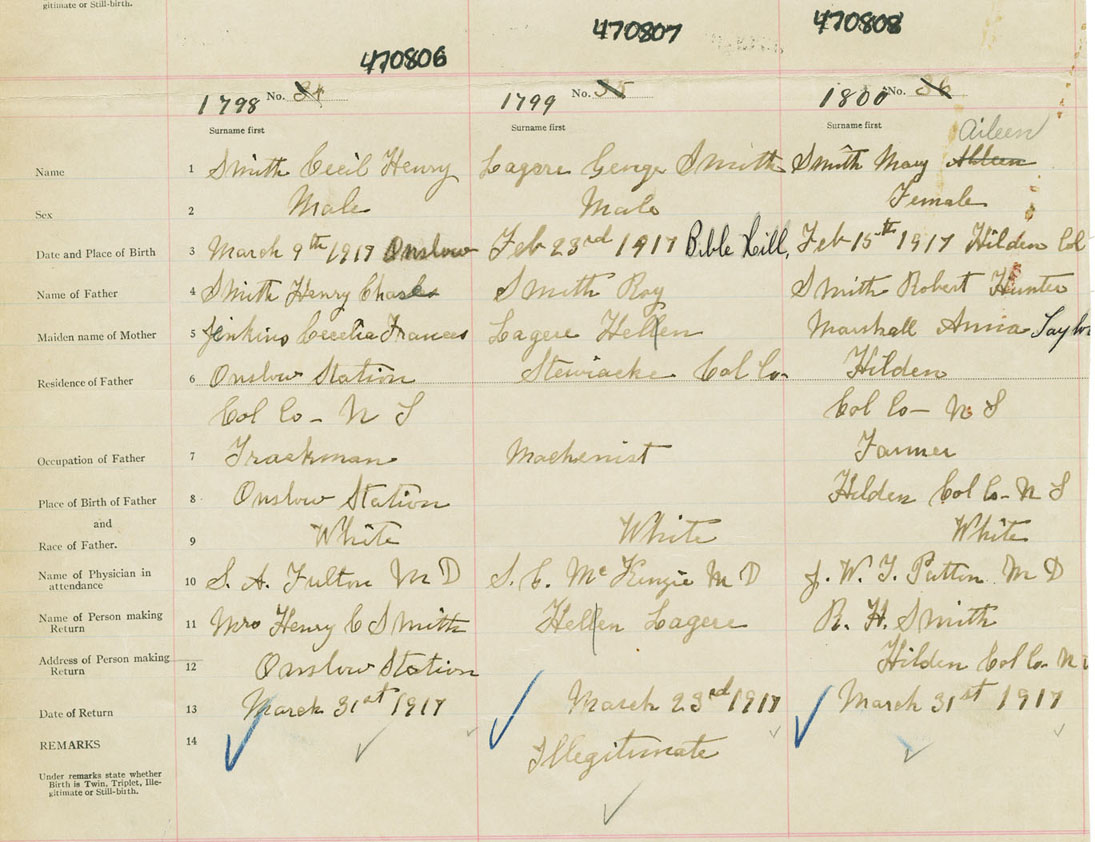 gitimate or Still-birth.
470806 470807 470808
1798 No. 34 1799 No. 35 1800 No. 36
Surname first Surname first Surname first
Aileen
Name 1 Smith Cecil Henry Lagere George Smith Smith Mary Ahleen
Sex 2 Male Male Female
Date and Place of Birth 3 March 9th 1917 Onslow Feb 23rd 1917 Bible Hill, Feb 15th 1917 Hilden Col
Name of Father 4 Smith Henry Charles Smith Roy Smith Robert Hunter
Maiden name of Mother 5 Jenkins Cecelia Frances Lagere Hellen Marshall Anna Taylor
Residence of Father 6 Onslow Station Stewiacke Col Co- Hilden
Col Co- N S Col Co- N S
Occupation of Father 7 Trackman Machenist Farmer
Place of Birth of Father 8 Onslow Station Hilden Col Co- N S
and
Race of Father. 9 White White White
Name of Physician in attendance 10 S. A. Fulton M D S. C. Mc Kenzie M D J. W. T. Patton M D
Name of Person making Return 11 Mrs Henry C Smith Hellen Lagere R. H. Smith
Address of Person making Return 12 Onslow Station Hilden Col Co- N
Date of Return 13 March 31st 1917 March 23rd 1917 March 31st 1917
REMARKS 14 Illegitimate
Under remarks state whether
Birth is Twin, Triplet, Ille-
gitimate or Still-birth.